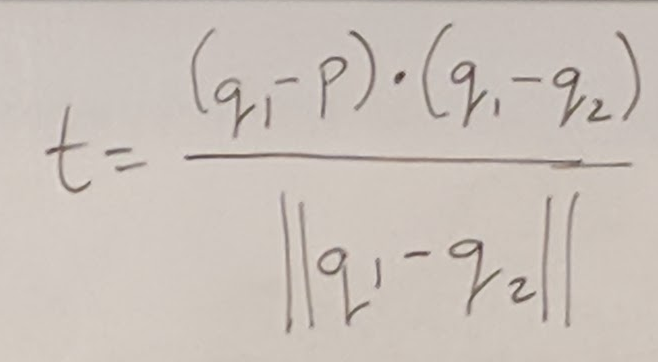 t = \frac{(q_1 - p) \cdot (q_1 - q_2)}{||q_1 - q_2||}